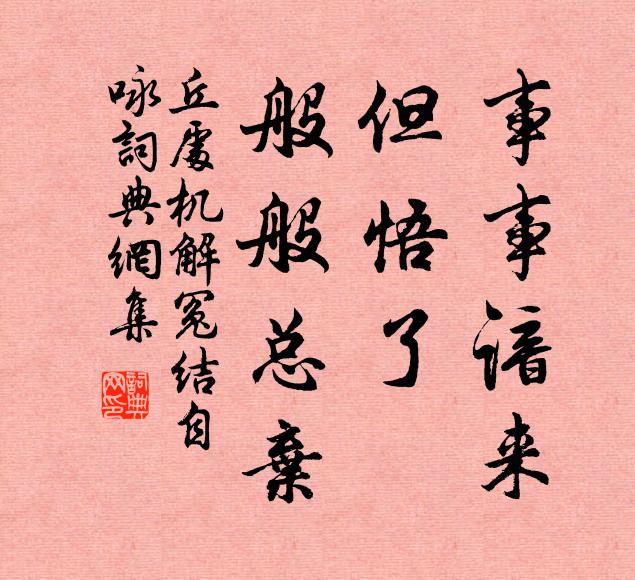 事事谙来
但悟了
般般总棄
丘處机解冤结自
咏詞典網集
詞典网印